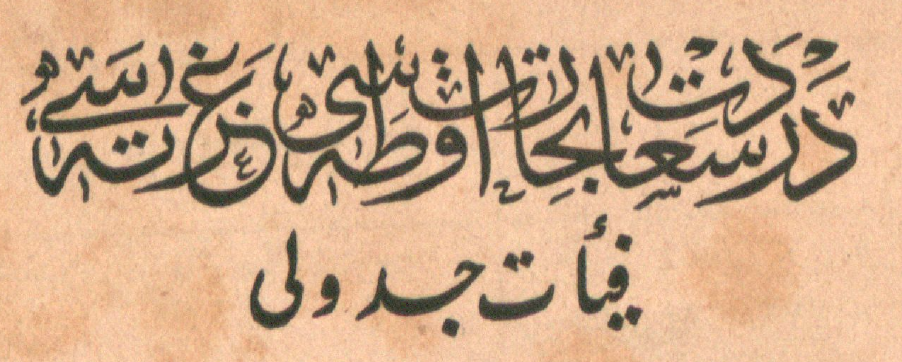 درسعادت تجارت اوطه سی غزته سی
فیأت جدولی